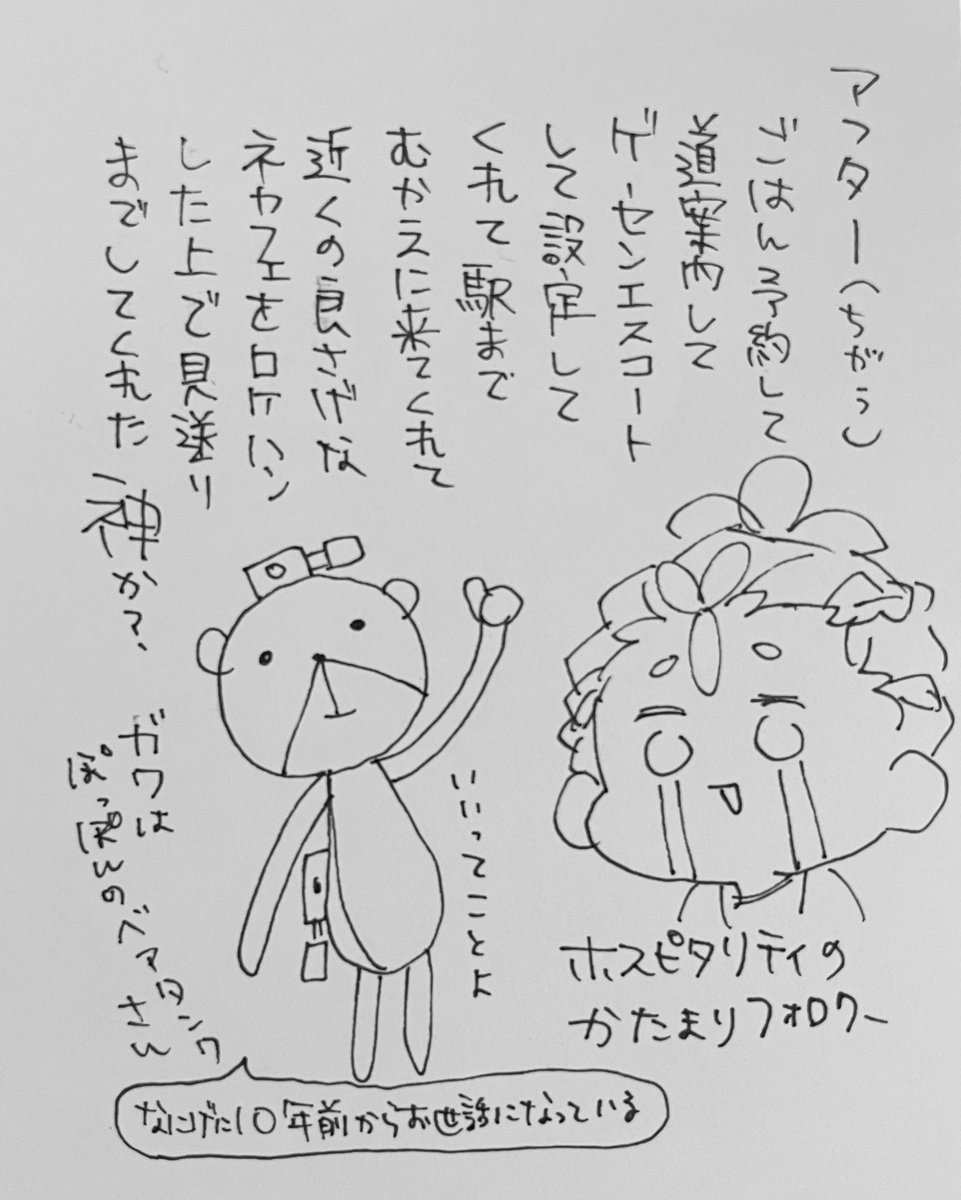 アフター(ちがう)
ごはん予約して
道案内して
ゲーセンエスコート
して設定して
くれて駅まで
むかえに来てくれて
近くの良さげな
ネカフェをロケハン
した上で見送り
までしてくれた
神か?
いいってことよ
ホスピタリティの
かたまりフォロワー
ガワは
ぽっぽんのベアタンク
さん
なにげに10年前からお世話になっている